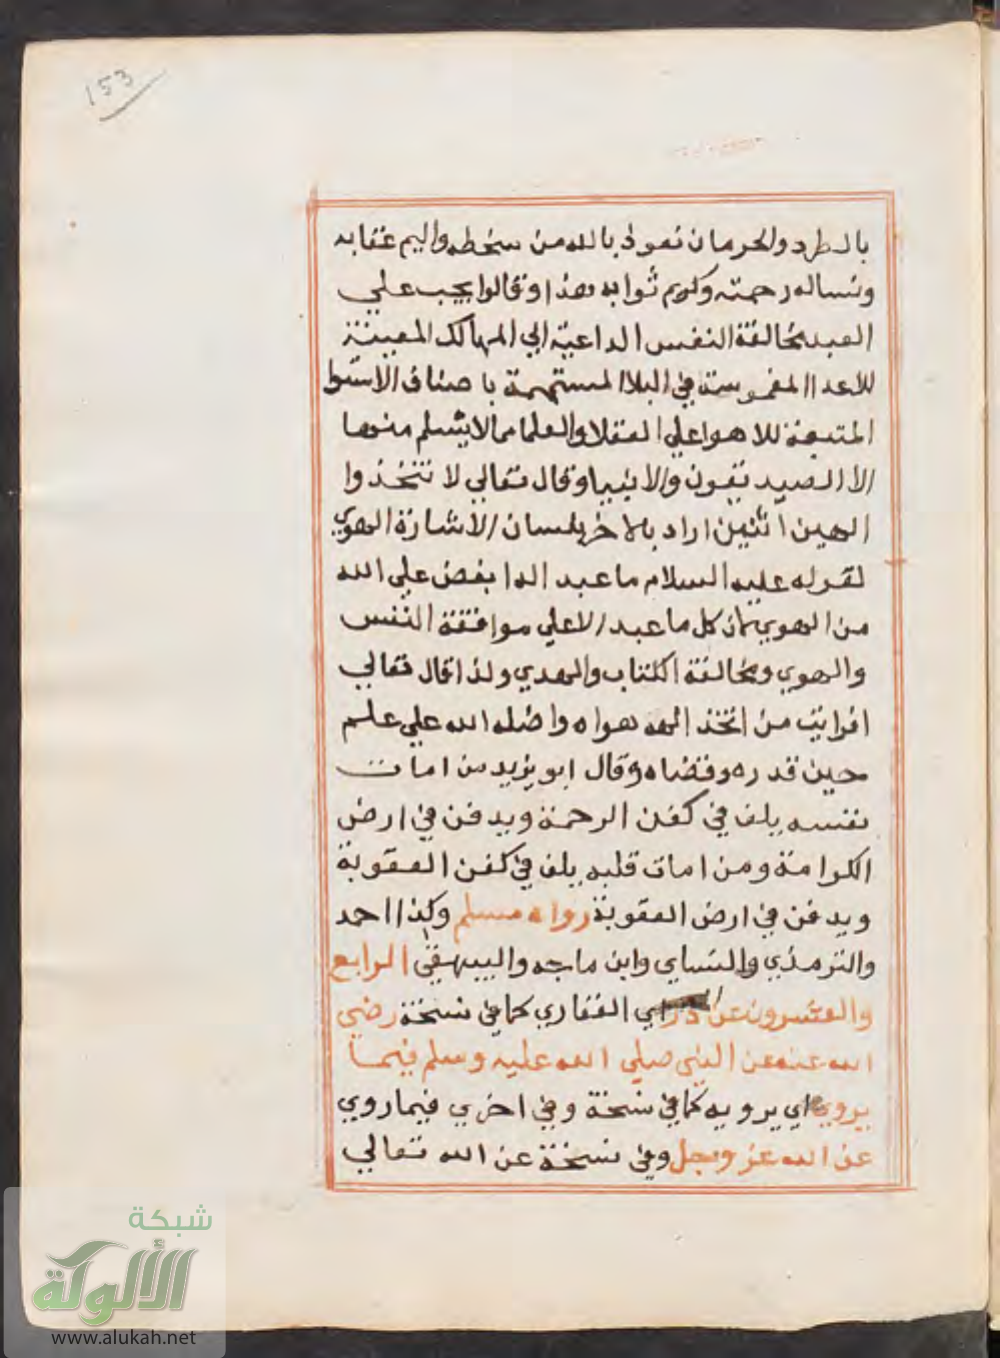 153
بالطرد والحرمان نعوذ بالله من سخطه واليم عقابه
ونساله رحمته وكريم ثوابه هذا وقالوا يجب علي
العبد مخالفة النفس الداعية الي المهالك المعينة
للاعدا المغموسة في البلا المستهمة باصناف الاسوا
المتبعة للاهوا علي العقلا والعلما مما لا يسلم منها
الا الصديقون والانبيا وقال تعالي لا تتخذوا
الهين اثنين اراد بالاخر بلسان الاشارة الهوي
لقوله عليه السلام ما عبد اله ابغض علي الله
من الهوي كل ما عبد الا علي موافقة النفس
والهوي ومخالفة الكتاب والهدي ولذا قال تعالي
افرايت من اتخذ الهه هواه واضله الله علي علم
حين قدره وقضاه وقال ابو يزيد من امات
نفسه يلف في كفن الرحمة ويدفن في ارض
الكرامة ومن امات قلبه يلف في كفن العقوبة
ويدفن في ارض العقوبة رواه مسلم وكذا احمد
والترمذي والنساي وابن ماجه والبيهقي الرابع
والعشرون عن ابي ذر الغفاري كما في نسخة رضي
الله عنه عن النبي صلي الله عليه وسلم فيما
يروي اي يرويه كما في نسخة وفي اخري فيما روي
عن الله عز وجل وفي نسخة عن الله تعالي
شبكة
الألوكة
www.alukah.net